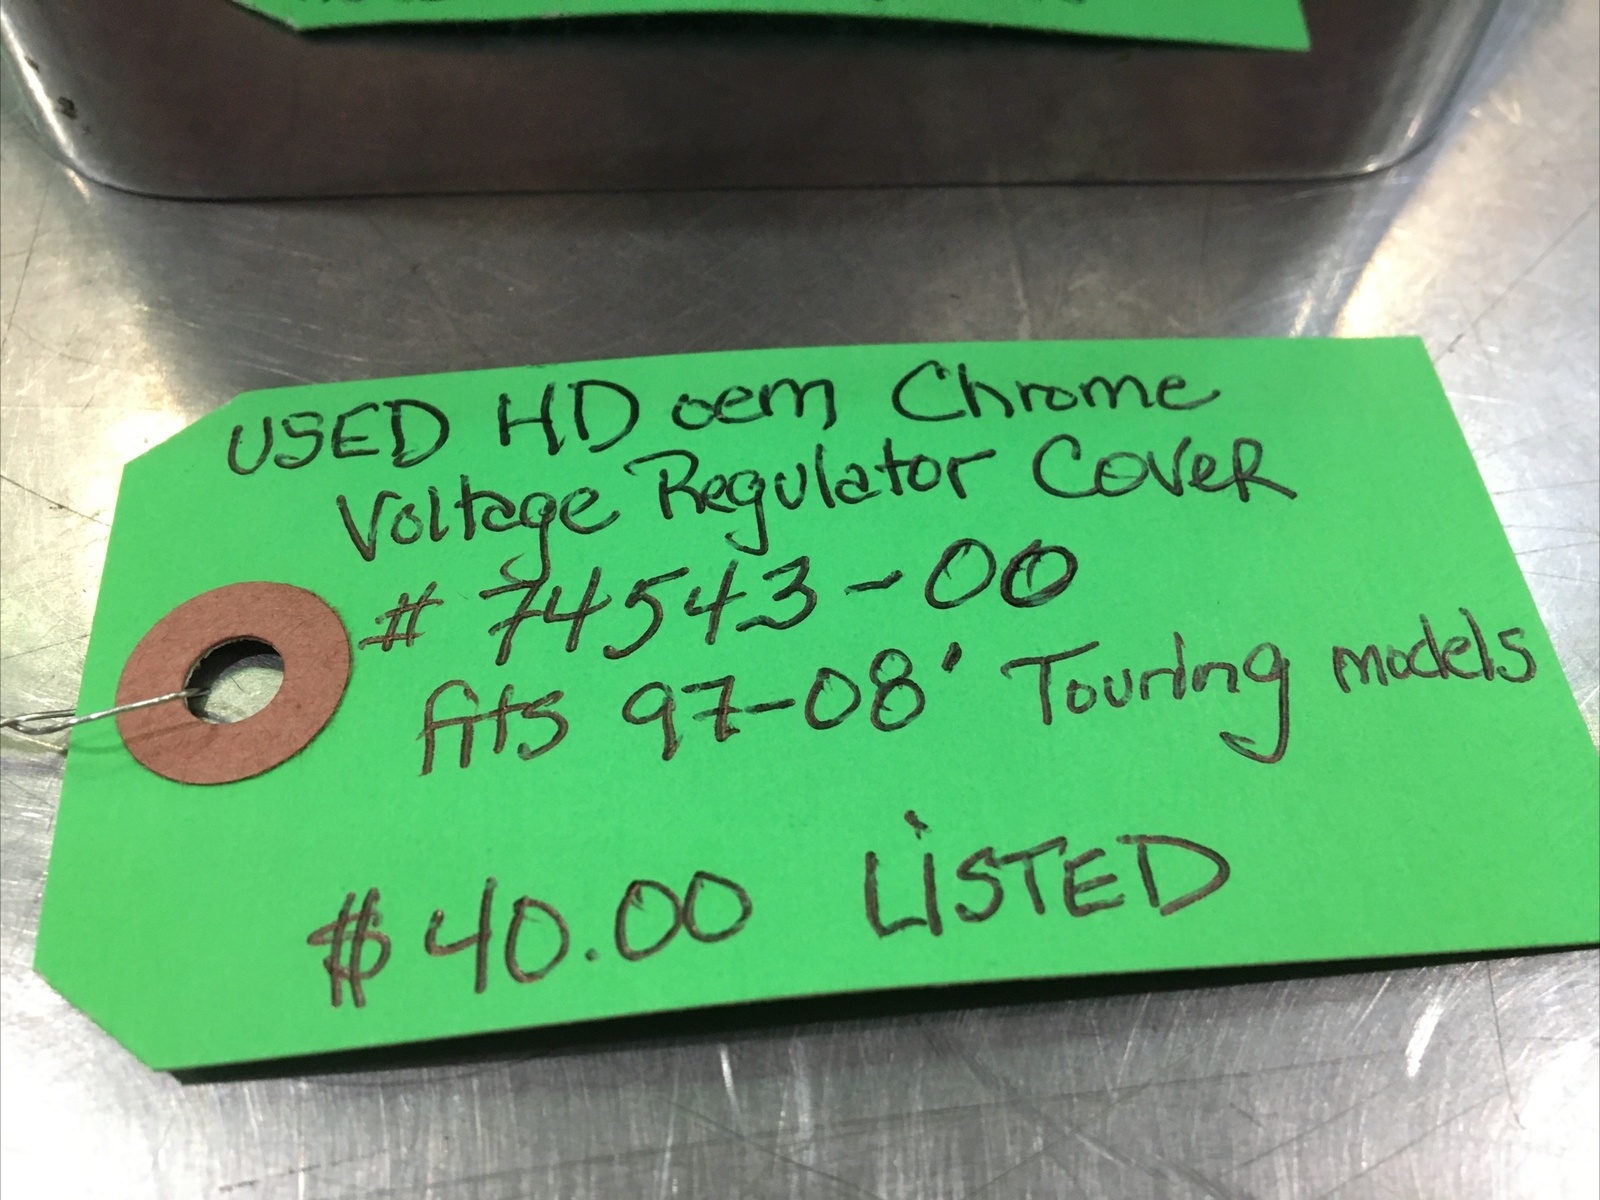 USED HD oem Chrome
Voltage Regulator Cover
# 74543-00
fits 97-08' Touring models
$40.00 LiSTED